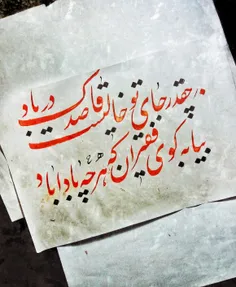 چقدر جای تو خالیست قاصدک در باد
بیا به کوی فقیران که هر چه بادا باد